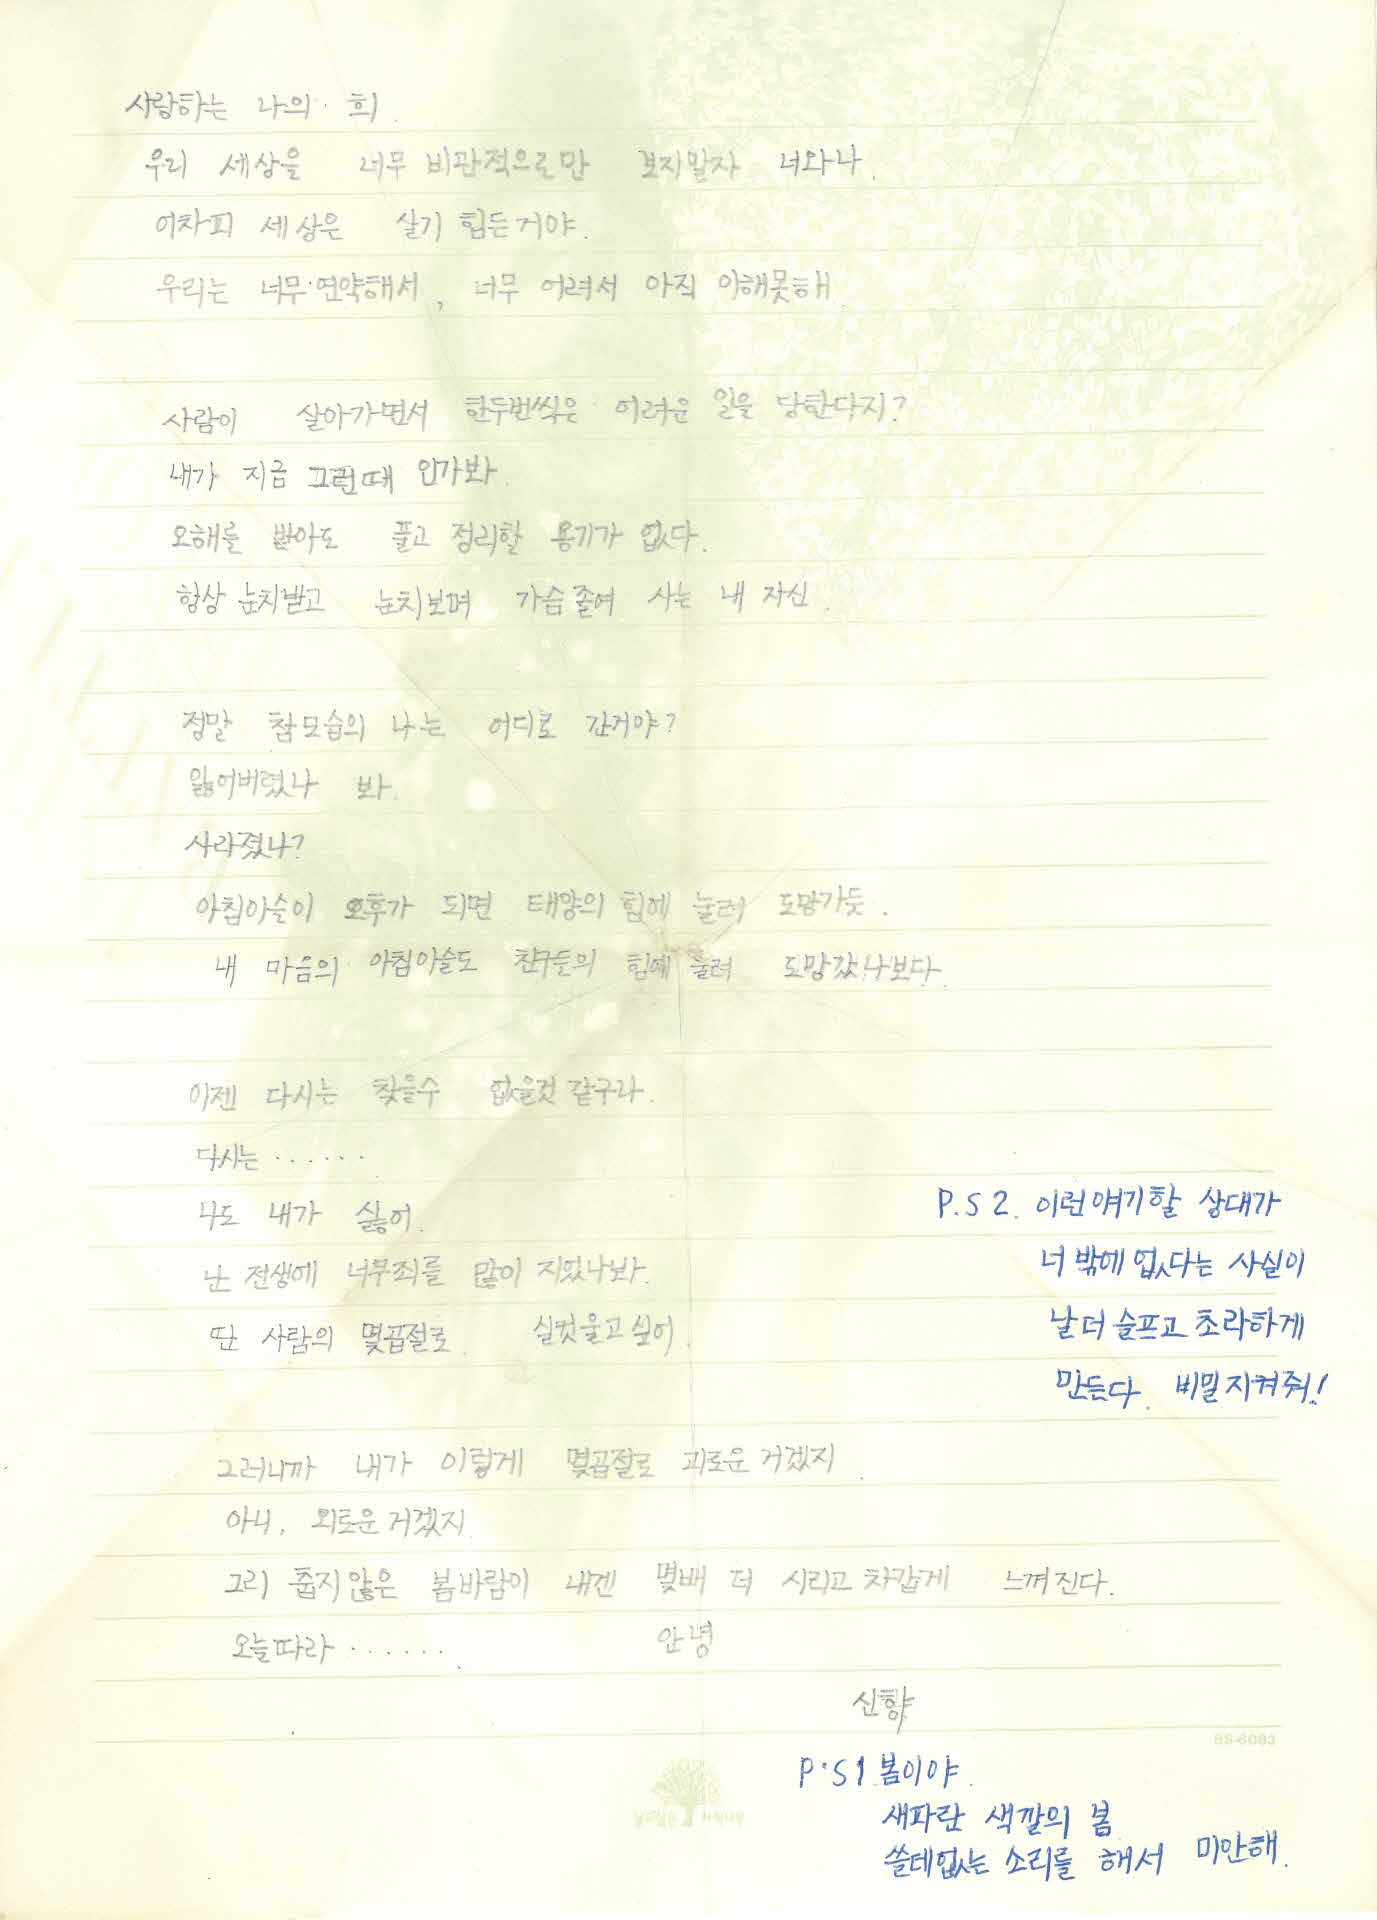 사랑하는 나의 희.
우리 세상을 너무 비관적으로만 보지말자 너와나.
어차피 세상은 살기 힘든거야.
우리는 너무 연약해서, 너무 어려서 아직 이해못해.
사람이 살아가면서 한두번씩은 어려운 일을 당한다지?
내가 지금 그런때 인가봐.
오해를 받아도 풀고 정리할 용기가 없다.
항상 눈치받고 눈치보며 가슴졸여 사는 내 자신.
정말 참모습의 나는 어디로 간거야?
잃어버렸나 봐.
사라졌나?
아침이슬이 오후가 되면 태양의 힘에 눌려 도망가듯.
내 마음의 아침이슬도 친구들의 힘에 눌려 도망갔나보다.
이젠 다시는 찾을수 없을것 같구나.
다시는......
나도 내가 싫어.
난 전생에 너무죄를 많이 지었나봐.
딴 사람의 몇곱절로. 실컷울고싶어.
그러니까 내가 이렇게 몇곱절로 괴로운거겠지
아니, 외로운거겠지.
그리 춥지않은 봄바람이 내겐 몇배 더 시리고 차갑게 느껴진다.
오늘따라...... 안녕
신향
P.S1. 봄이야.
새파란 색깔의 봄
쓸데없는 소리를 해서 미안해.
P.S2. 이런얘기할 상대가
너밖에 없다는 사실이
날더 슬프고 초라하게
만든다. 비밀지켜줘!
BS-6083